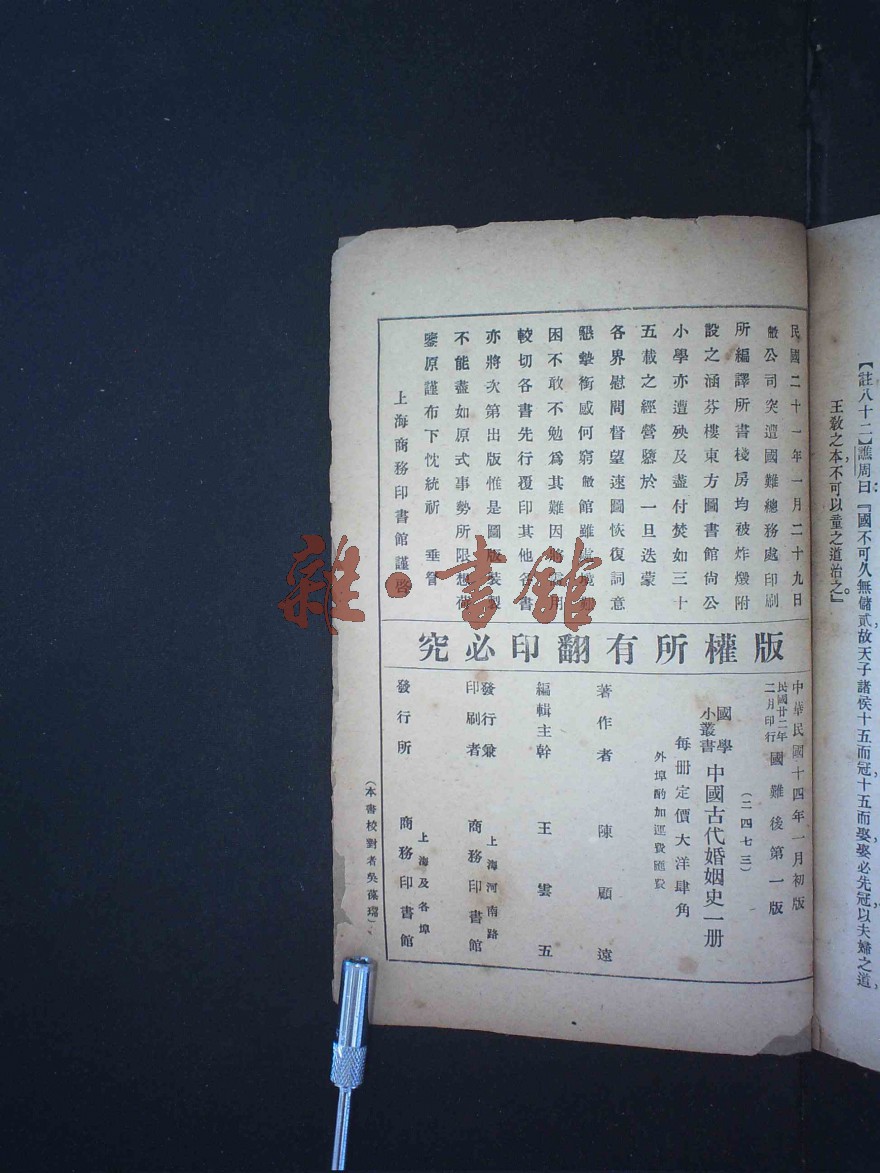 【註八十二】譙周曰：『國不可久無儲貳，故天子諸侯十五而冠，十五而娶，娶必先冠，以夫婦之道，
王教之本，不可以童之道治之。』
民國二十一年一月二十九日
敝公司突遭國難總務處印刷
所編譯所書棧房均被炸燬附
設之涵芬樓東方圖書館尚公
小學亦遭殃及盡付焚如三十
五載之經營隳於一旦迭蒙
各界慰問督望速圖恢復詞意
懇摯銜感何窮敝館雖處境
困不敢不勉爲其難因將用
較切各書先行覆印其他各書
亦將次第出版惟是圖版裝製
不能盡如原式事勢所限想荷
鑒原謹布下忱統祈 垂詧
上海商務印書館謹啓
版權所有翻印必究
中華民國十四年一月初版
民國廿二年二月印行 國難後第一版
（二四七三）
國學小叢書 中國古代婚姻史一册
每册定價大洋肆角
外埠酌加運費匯費
著作者 陳顧遠
編輯主幹 王雲五
發行兼印刷者 上海河南路 商務印書館
發行所 上海及各埠 商務印書館
（本書校對者吳葆瑞）
雜·書館